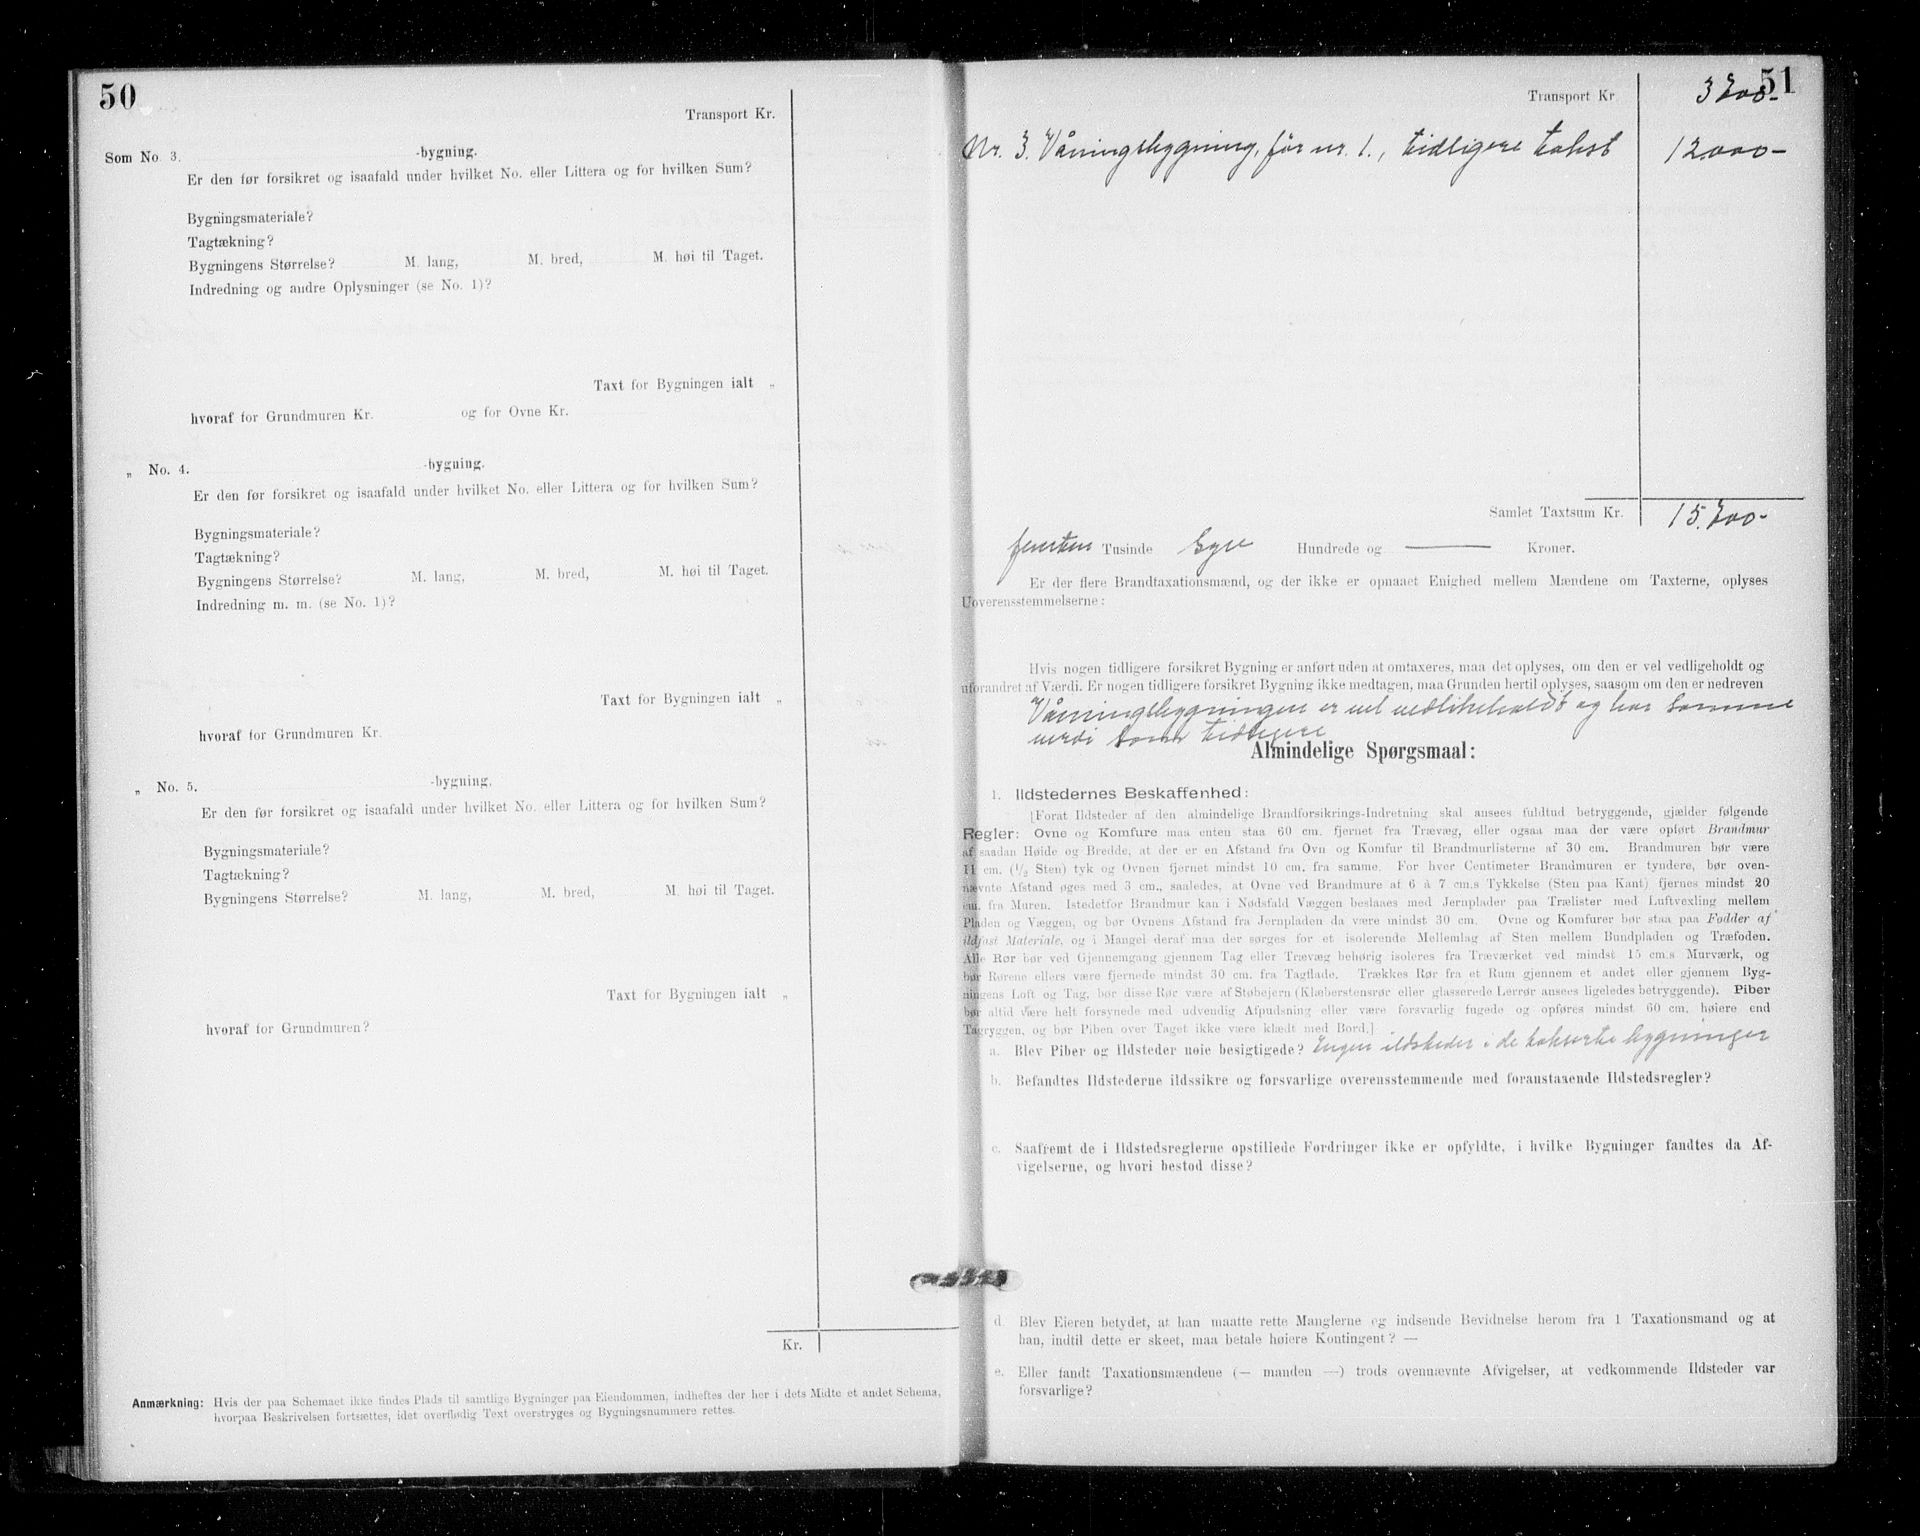 50
Transport Kr.
Som No. 3. -bygning.
Er den før forsikret og isaafald under hvilket No. eller Littera og for hvilken Sum?
Bygningsmateriale?
Tagtækning?
Bygningens Størrelse? M. lang, M. bred, M. høi til Taget.
Indredning og andre Oplysninger (se No. 1)?
Taxt for Bygningen ialt „
hvoraf for Grundmuren Kr. og for Ovne Kr.
„ No. 4. -bygning.
Er den før forsikret og isaafald under hvilket No. eller Littera og for hvilken Sum?
Bygningsmateriale?
Tagtækning?
Bygningens Størrelse? M. lang, M. bred, M. høi til Taget.
Indredning m. m. (se No. 1)?
Taxt for Bygningen ialt „
hvoraf for Grundmuren Kr.
„ No. 5. -bygning.
Er den før forsikret og isaafald under hvilket No. eller Littera og for hvilken Sum?
Bygningsmateriale?
Tagtækning?
Bygningens Størrelse? M. lang, M. bred, M. høi til Taget.
Taxt for Bygningen ialt „
hvoraf for Grundmuren?
Kr.
Anmærkning: Hvis der paa Schemaet ikke findes Plads til samtlige Bygninger paa Eiendommen, indheftes der her i dets Midte et andet Schema,
hvorpaa Beskrivelsen fortsættes, idet overflødig Text overstryges og Bygningsnummere rettes.
51
Transport Kr 3700-
Nr. 3. Våningsbygning, før nr. 1., tidligere takst 12000-
Samlet Taxtsum Kr. 15.700-
femten Tusinde syv Hundrede og — Kroner.
Er der flere Brandtaxationsmænd, og der ikke er opnaaet Enighed mellem Mændene om Taxterne, oplyses
Uoverensstemmelserne:
Hvis nogen tidligere forsikret Bygning er anført uden at omtaxeres, maa det oplyses, om den er vel vedligeholdt og
uforandret af Værdi. Er nogen tidligere forsikret Bygning ikke medtagen, maa Grunden hertil oplyses, saasom om den er nedreven
Våningsbygningen er vel vedlikeholdt og har samme
verdi som tidligere
Almindelige Spørgsmaal:
1. Ildstedernes Beskaffenhed:
[Forat Ildsteder af den almindelige Brandforsikrings-Indretning skal ansees fuldtud betryggende, gjælder følgende
Regler: Ovne og Komfure maa enten staa 60 cm. fjernet fra Trævæg, eller ogsaa maa der være opført Brandmur
af saadan Høide og Bredde, at der er en Afstand fra Ovn og Komfur til Brandmurlisterne af 30 cm. Brandmuren bør være
11 cm. (1/2 Sten) tyk og Ovnen fjernet mindst 10 cm. fra samme. For hver Centimeter Brandmuren er tyndere, bør oven-
nævnte Afstand øges med 3 cm., saaledes, at Ovne ved Brandmure af 6 à 7 cm.s Tykkelse (Sten paa Kant) fjernes mindst 20
cm. fra Muren. Istedetfor Brandmur kan i Nødsfald Væggen beslaaes med Jernplader paa Trælister med Luftvexling mellem
Pladen og Væggen, og bør Ovnens Afstand fra Jernpladen da være mindst 30 cm. Ovne og Komfurer bør staa paa Fødder af
ildfast Materiale, og i Mangel deraf maa der sørges for et isolerende Mellemlag af Sten mellem Bundpladen og Træfoden.
Alle Rør bør ved Gjennemgang gjennem Tag eller Trævæg behørig isoleres fra Træværket ved mindst 15 cm.s Murværk, og
bør Rørene ellers være fjernede mindst 30 cm. fra Tagflade. Trækkes Rør fra et Rum gjennem et andet eller gjennem Byg-
ningens Loft og Tag, bør disse Rør være af Støbejern (Klæberstensrør eller glasserede Lerrør ansees ligeledes betryggende). Piber
bør altid være helt forsynede med udvendig Afpudsning eller være forsvarlig fugede og opføres mindst 60 cm. høiere end
Tagryggen, og bør Piben over Taget ikke være klædt med Bord.]
a. Blev Piber og Ildsteder nøie besigtigede? Ingen ildsteder i de takserte bygninger
b. Befandtes Ildstederne ildssikre og forsvarlige overensstemmende med foranstaaende Ildstedsregler?
c. Saafremt de i Ildstedsreglerne opstillede Fordringer ikke er opfyldte, i hvilke Bygninger fandtes da Af-
vigelserne, og hvori bestod disse?
d. Blev Eieren betydet, at han maatte rette Manglerne og indsende Bevidnelse herom fra 1 Taxationsmand og at
han, indtil dette er skeet, maa betale høiere Kontingent? —
e. Eller fandt Taxationsmændene (— manden —) trods ovennævnte Afvigelser, at vedkommende Ildsteder var
forsvarlige?